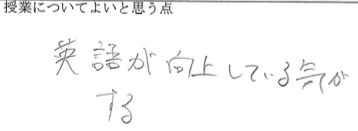 授業についてよいと思う点
英語が向上している気が
する